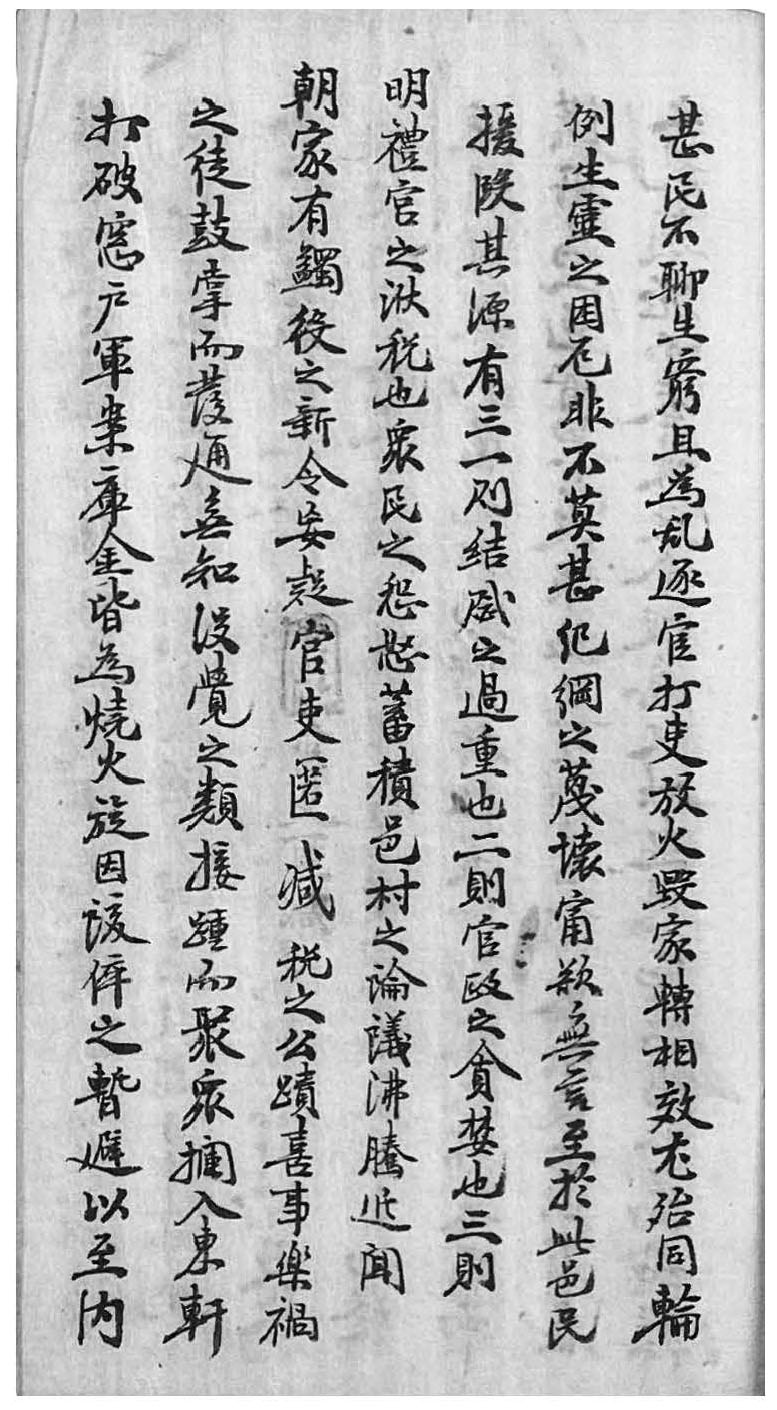 甚民不聊生窮且為乱逐官打吏放火毁家轉相效尤殆同輪
例生靈之困厄非不莫甚紀綱之蔑壞甯欲無言至於此邑民
擾段其源有三一則結戚之過重也二則官政之貪婪也三則
明禮宮之洑税也衆民之怨愁蓄積邑村之論議沸騰近聞
朝家有蠲役之新令妄疑官吏匿减税之公蹟喜事樂禍
之徒鼓掌而發通無知没覺之類接踵而聚衆攔入東軒
打破窓户軍案庫金皆為燒火旋因該倅之暫避以至内